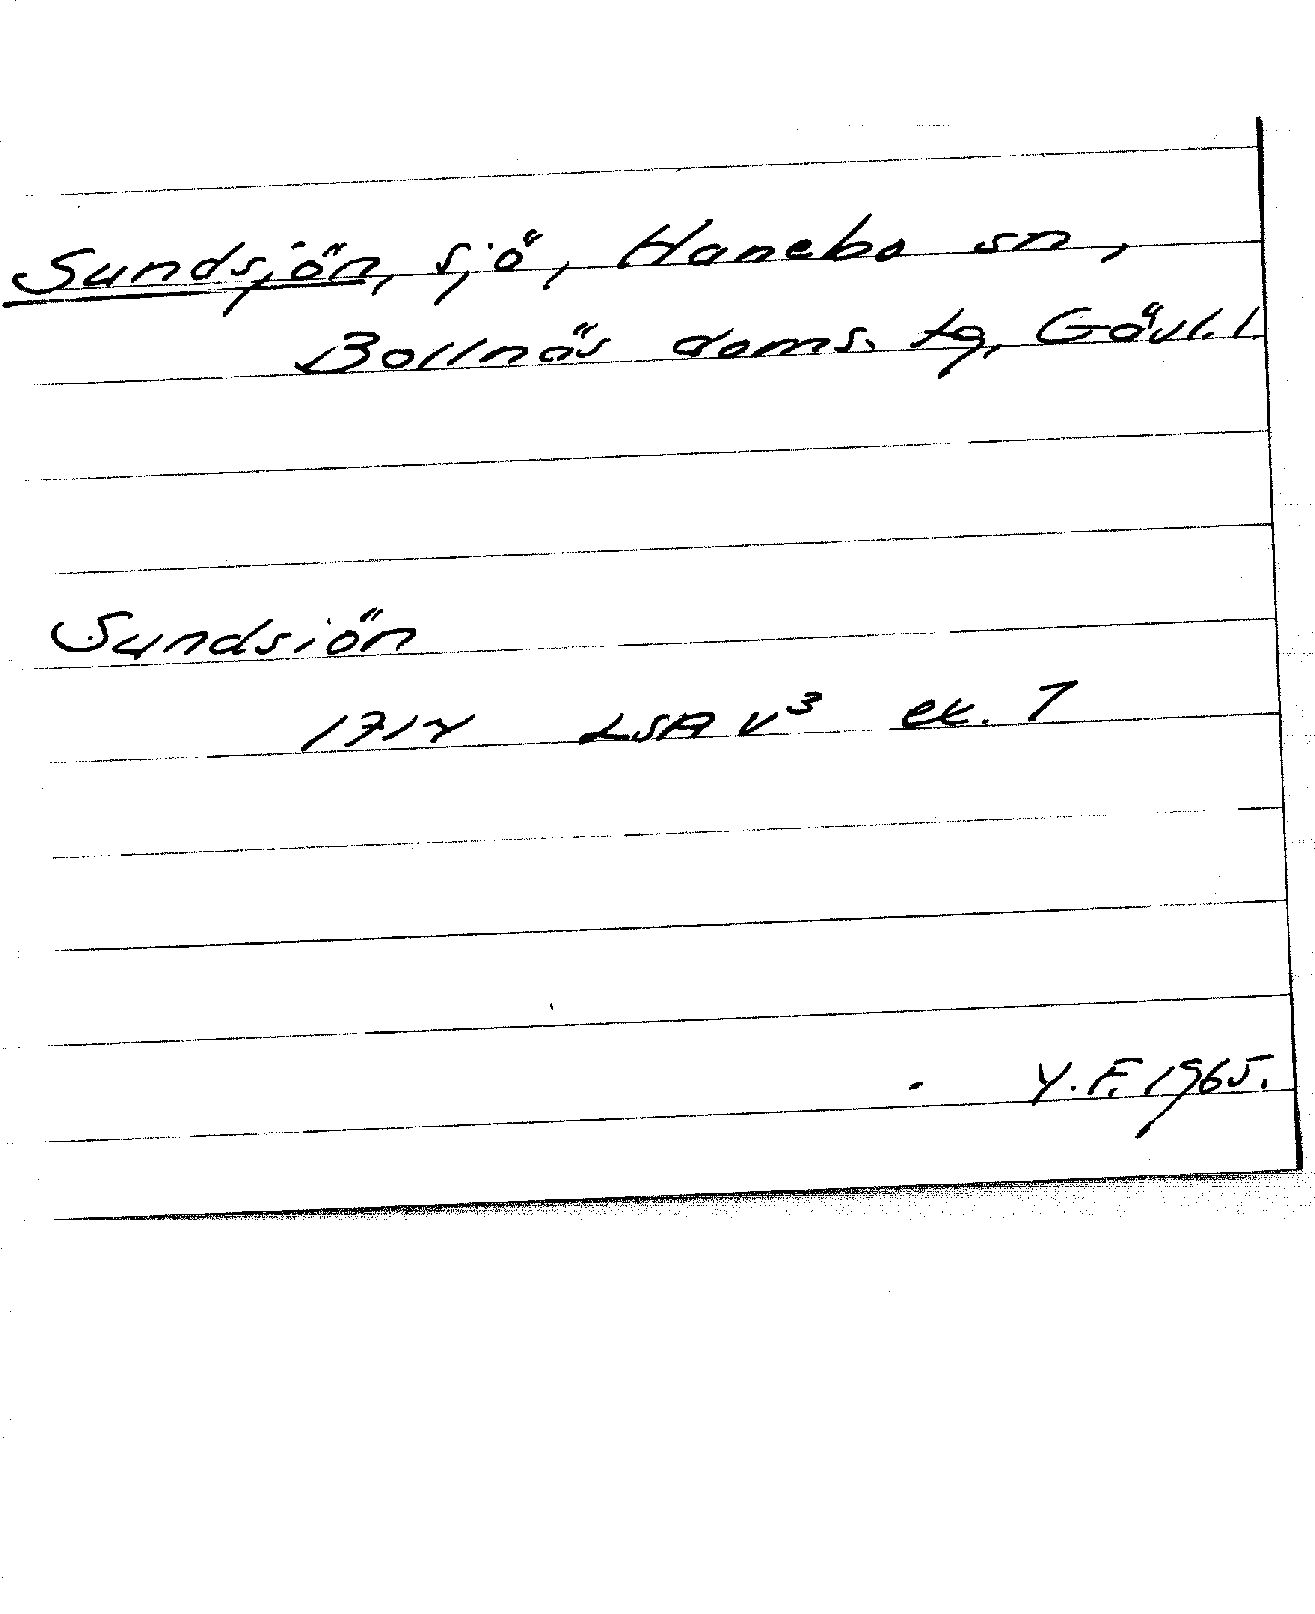 Sundsjön, sjö, Hanebo sn,
Bollnäs doms. tg, Gävl. l.
Sundsiön
LSA V³ ek. 7
Y. F. 1965.